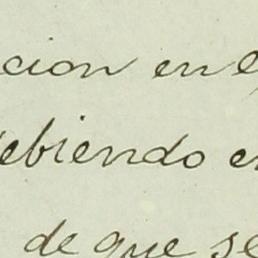 cion en e
ebiendo e
de que se